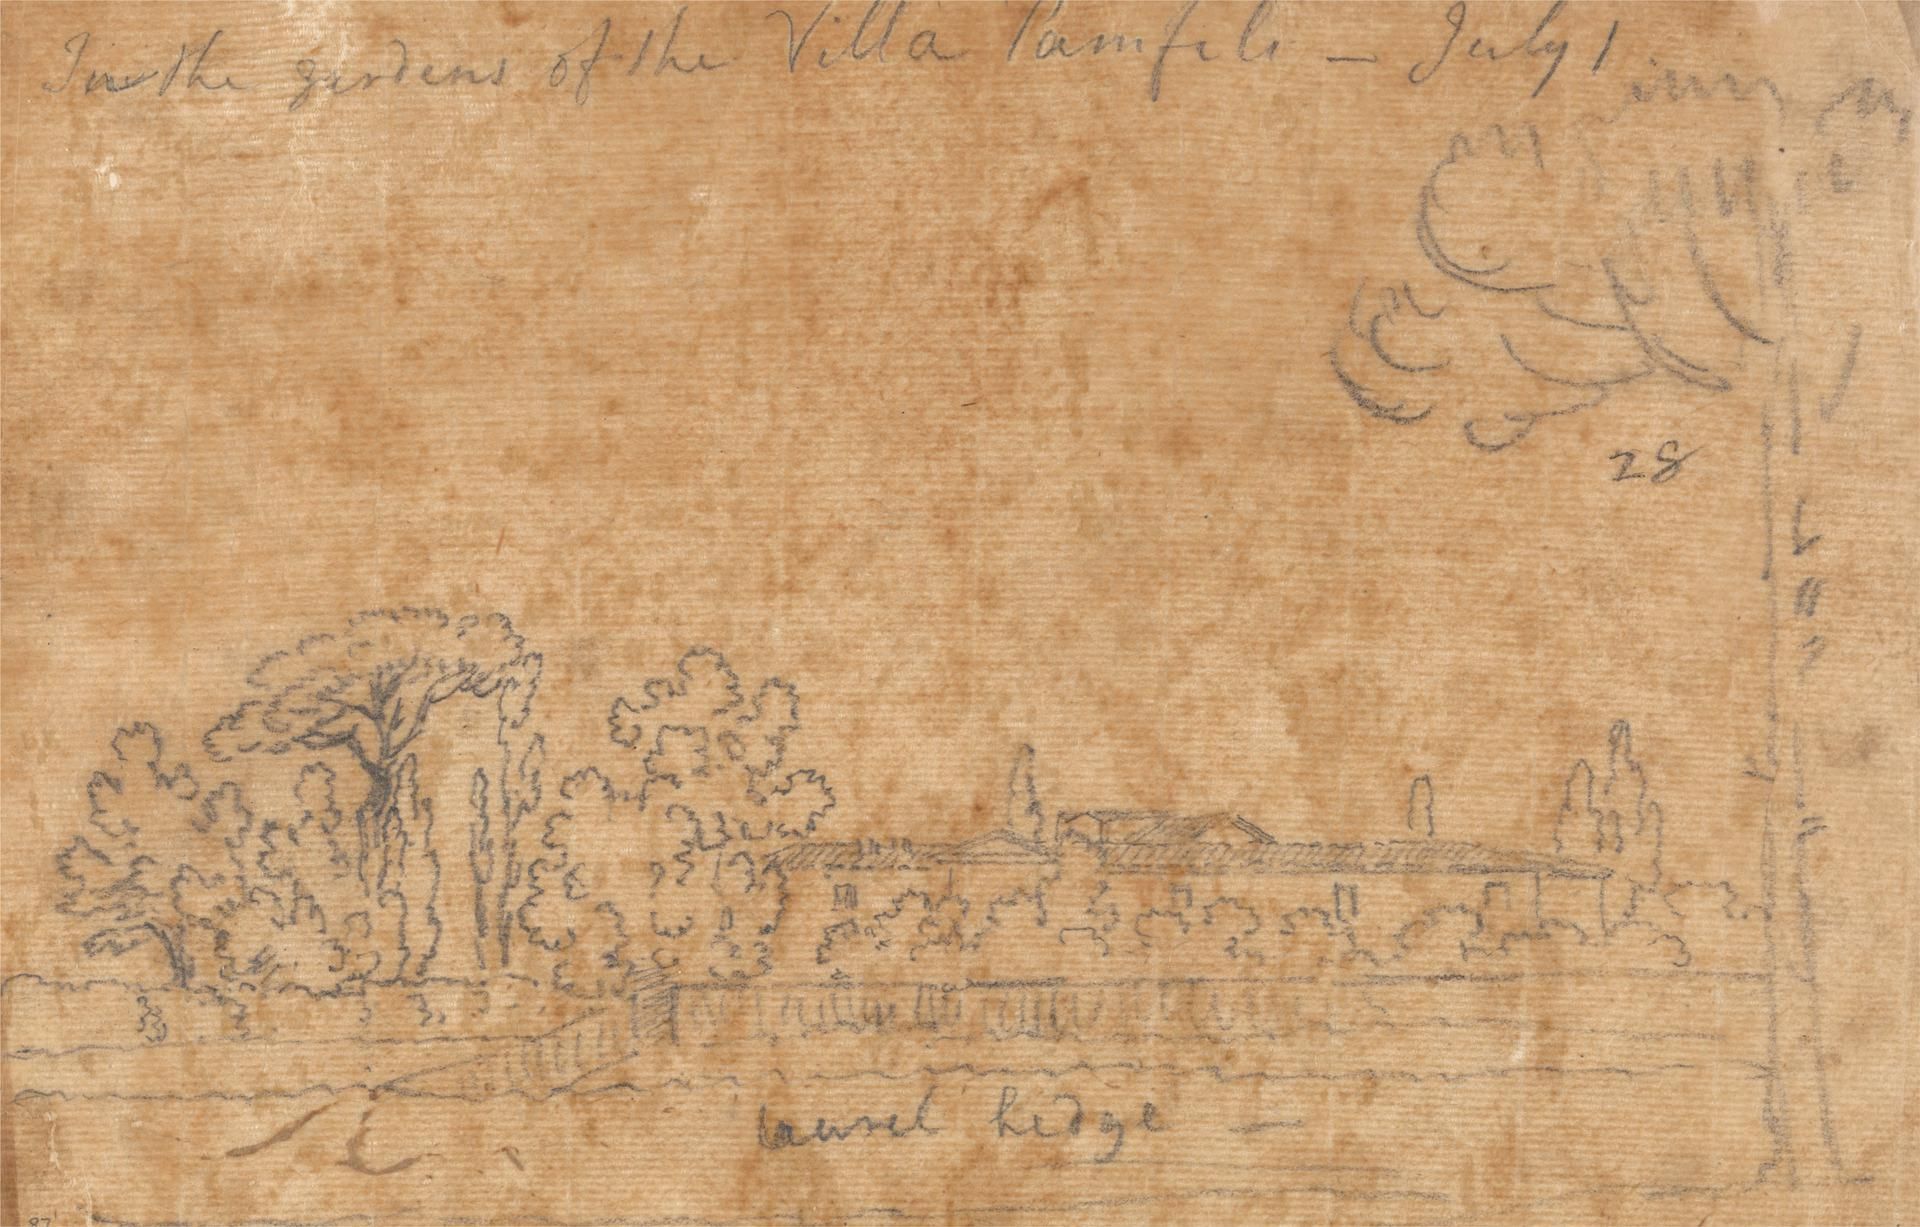 In the gardens of the Villa Pamfili — July 1
28
laurel hedge —
87